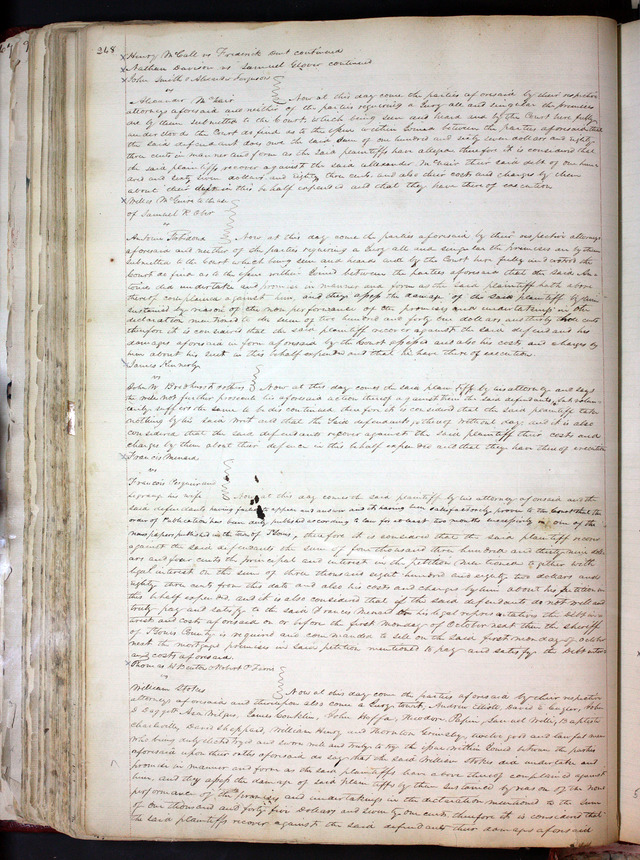 268
Henry McCall vs Frederick Dent continued
Nathan Davison vs Samuel Glover continued
John Smith & Alexander Ferguson
vs
Alexander McNair Now at this day come the parties aforesaid by their respective
attorneys aforesaid and neither of the parties requiring a Jury all and singular the premises
are by them submitted to the Court, which being seen and heard and by the Court here fully
understood the Court do find as to the issue within Joined between the parties aforesaid that
the said defendant does owe the said sum of one hundred and sixty seven dollars and eighty
three cents in manner and form as the said plaintiffs have alleged, therefore it is considered that
the said plaintiffs recover against the said Alexander McNair their said debt of one hun-
dred and sixty seven dollars and eighty three cents and also their costs and charges by them
about their suit in this behalf expended and that they have thereof execution
Willis McGuire to the use
of Samuel R Ober
vs
Antoine Now at this day come the parties aforesaid by their respective attorneys
aforesaid and neither of the parties requiring a Jury all and singular the premises are by them
submitted to the Court which being seen and heard and by the Court here fully understood the
Court do find as to the issue within Joined between the parties aforesaid that the said An-
toine did undertake and promise in manner and form as the said plaintiff hath above
thereof complained against him, and they assess the damage of the said plaintiff by him
sustained by reason of the non performance of the promises and undertakings in the
declaration mentioned to the sum of two hundred and forty one dollars and thirty three cents
therefore it is considered that the said plaintiff recover against the said defendant his
damages aforesaid in form aforesaid by the Court assessed and also his costs and charges by
him about his suit in this behalf expended and that he have thereof execution
James Kennerly
vs
John W. & others Now at this day comes the said plaintiff by his attorney and says
he will not further prosecute his aforesaid action thereof against them the said defendants, but volun-
tarily suffers the same to be discontinued therefore it is considered that the said plaintiff take
nothing by his said Writ and that the said defendants go thereof without day, and it is also
considered that the said defendants recover against the said plaintiff their costs and
charges by them about their defence in this behalf expended and that they have thereof execution
Francis Menard
vs
Francois and
his wife Now at this day comes the said plaintiff by his attorney aforesaid and the
said defendants having failed to appear and answer and it having been satisfactorily proven to the Court that the
order of Publication has been duly published according to law for at least two months successively in one of the
newspapers published in the town of St Louis, therefore it is considered that the said plaintiff recover
against the said defendants the sum of four thousand three hundred and thirty nine dol-
lars and four cents the principal and interest in the petition mentioned together with
legal interest on the sum of three thousand eight hundred and eighty two dollars and
eighty three cents from this date and also his costs and charges by him about his petition in
this behalf expended, and it is also considered that if the said defendants do not well and
truly pay and satisfy to the said Francis Menard or his legal representatives the debt in-
terest and costs aforesaid on or before the first monday of October next then the sheriff
of St Louis County is required and commanded to sell on the said first monday of october
next the mortgaged premises in said petition mentioned to pay and satisfy the Debt interest
and costs aforesaid.
Thomas H Benton & Robert P Farris
vs
William Stokes Now at this day come the parties aforesaid by their respective
attorneys aforesaid and thereupon also come a Jury towit, Andrew Elliott, David E Cuyler, John
D Daggett, Asa Wilgus, James Conklin, John Huffa, Theodore Papin, Samuel Willi, Baptiste
Charleville, David Sheppard, William Henry and Thornton Grimsley, twelve good and lawful men
who being duly elected tryed and sworn well and truly to try the issue within Joined between the parties
aforesaid upon their oaths aforesaid do say that the said William Stokes did undertake and
promise in manner and form as the said plaintiffs have above thereof complained against
him, and they assess the damage of said plaintiffs by them sustained by reason of the non
performance of the promises and undertakings in the declaration mentioned to the sum
of One thousand and forty five Dollars and seventy one cents therefore it is considered that
the said plaintiffs recover against the said defendant their damages aforesaid